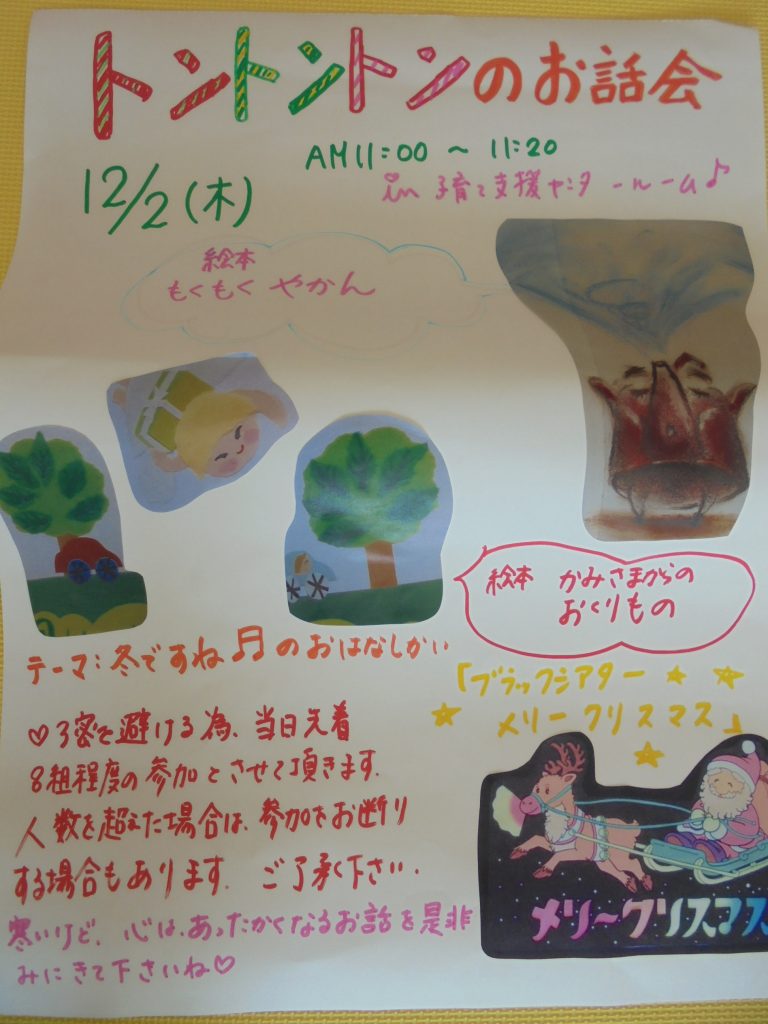 トントントンのお話会
AM11:00 ～ 11:20
12/2(木)
in 子育て支援センタールーム♪
絵本
もくもくやかん
絵本 かみさまからの
おくりもの
テーマ:冬ですね♬のおはなしかい
「ブラックシアター ☆ ☆
☆ メリークリスマス」
♡3密を避ける為、当日先着
8組程度の参加とさせて頂きます.
人数を超えた場合は、参加をお断り
する場合もあります. ご了承下さい.
寒いけど、心は、あったかくなるお話を是非
みにきて下さいね♡
メリークリスマス